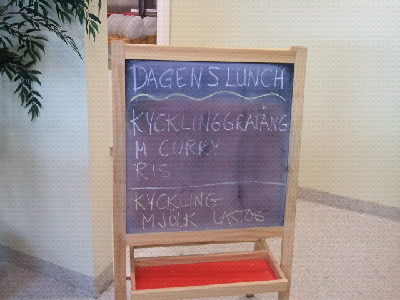 DAGENS LUNCH
KYCKLINGGRATÄNG
M CURRY
RIS
KYCKLING
MJÖLK LAKTOS